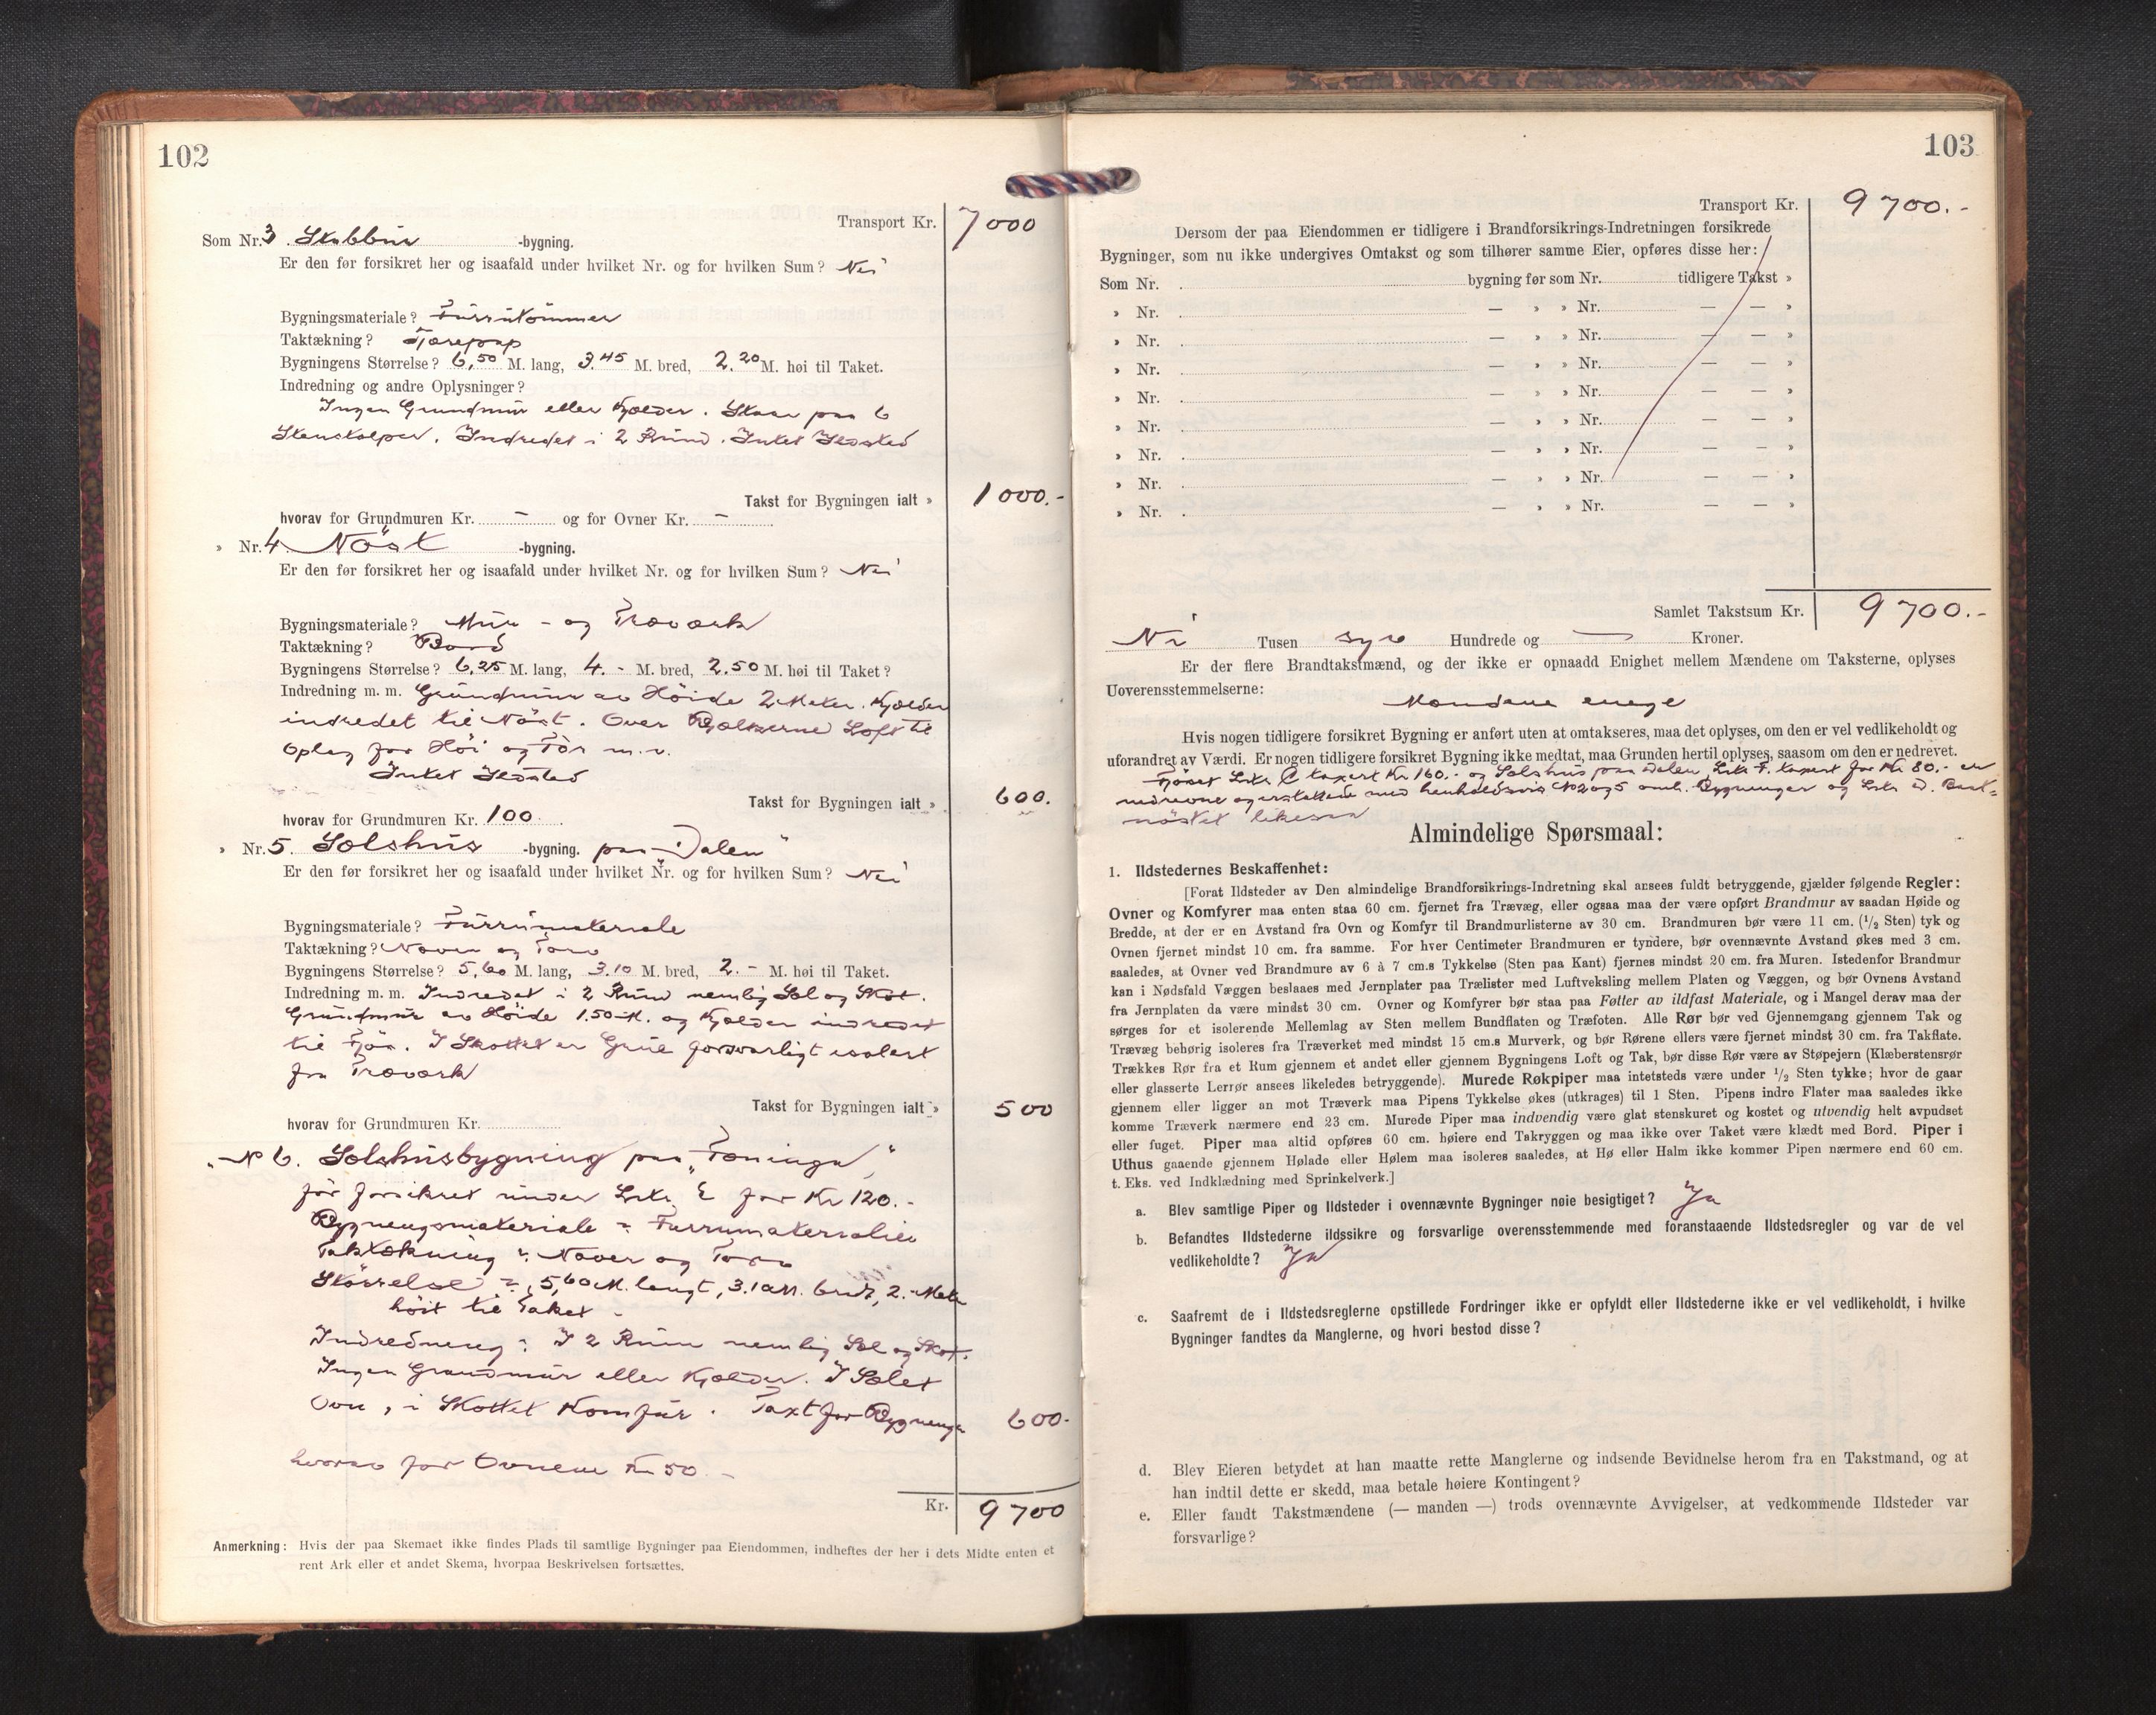 102
Transport Kr. 7000
Som Nr. 3. Stabbur -bygning.
Er den før forsikret her og isaafald under hvilket Nr. og for hvilken Sum? Nei
Bygningsmateriale? Furrutømmer
Taktækning? Tjærepap
Bygningens Størrelse? 6,50 M. lang, 3.45 M. bred, 2.20 M. høi til Taket.
Indredning og andre Oplysninger?
Ingen Grundmur eller Kjelder. Staar paa 6
Stenstolper. Indredet i 2 Rum. Intet Ildsted
Takst for Bygningen ialt » 1000.-
hvorav for Grundmuren Kr. - og for Ovner Kr. -
» Nr. 4. Nöst -bygning.
Er den før forsikret her og isaafald under hvilket Nr. og for hvilken Sum? Nei
Bygningsmateriale? Mur - og Træværk
Taktækning? Bord
Bygningens Størrelse? 6.25 M. lang, 4.- M. bred, 2.50 M. høi til Taket?
Indredning m. m. Grundmur av Höide 2 Meter. Kjelder
indredet til Nöst. Over Bjelkerne Loft til
Oplag for Höi og Tör m.v.
Intet Ildsted
Takst for Bygningen ialt » 600.
hvorav for Grundmuren Kr. 100
» Nr. 5. Selshus -bygning. paa "Dalen"
Er den før forsikret her og isaafald under hvilket Nr. og for hvilken Sum? Nei
Bygningsmateriale? Furrumateriale
Taktækning? Næver og Torv
Bygningens Størrelse? 5,60 M. lang, 3.10 M. bred, 2.- M. høi til Taket.
Indredning m. m. Indredet i 2 Rum nemlig Sel og Skot.
Grundmur av Höide 1.50 M. og Kjelder indredet
til Fjös. I Skottet er Grue forsvarligt isolert
fra Træværk
Takst for Bygningen ialt » 500
hvorav for Grundmuren Kr.
" N 6. Selshusbygning paa
för forsikret under Litr. E for Kr 120.-
Bygningsmateriale = Furrumaterialier
Taktækning : Næver og Torv
Störrelse = 5,60 M. langt, 3.10 M. bredt, 2.- Meter
höit til Taket -
Indredning : I 2 Rum nemlig Sel og Skot.
Ingen Grundmur eller Kjelder. I Selet
Ovn, i Skottet Komfur. Taxt for Bygningen 600.-
hvorav for Ovnene Kr 50.-
Kr. 9700
Anmerkning: Hvis der paa Skemaet ikke findes Plads til samtlige Bygninger paa Eiendommen, indheftes der her i dets Midte enten et
rent Ark eller et andet Skema, hvorpaa Beskrivelsen fortsættes.
103
Transport Kr. 9700.-
Dersom der paa Eiendommen er tidligere i Brandforsikrings-Indretningen forsikrede
Bygninger, som nu ikke undergives Omtakst og som tilhører samme Eier, opføres disse her:
Som Nr. bygning før som Nr. tidligere Takst »
» Nr. — » » Nr. — — »
» Nr. — » » Nr. — — »
» Nr. — » » Nr. — — »
» Nr. — » » Nr. — — »
» Nr. — » » Nr. — — »
» Nr. — » » Nr. — — »
» Nr. — » » Nr. — — »
» Nr. — » » Nr. — — »
Samlet Takstsum Kr. 9700.-
Ni Tusen syv Hundrede og — Kroner.
Er der flere Brandtakstmænd, og der ikke er opnaadd Enighet mellem Mændene om Taksterne, oplyses
Uoverensstemmelserne:
Mændene enige
Hvis nogen tidligere forsikret Bygning er anført uten at omtakseres, maa det oplyses, om den er vel vedlikeholdt og
uforandret av Værdi. Er nogen tidligere forsikret Bygning ikke medtat, maa Grunden hertil oplyses, saasom om den er nedrevet.
Fjöset Litr. C taxert Kr 160.- og Selshus paa Dalen Litr. F. taxert for Kr 80.- er
nedrevne og erstattede med henholdsvis No 2 og 5 omh. Bygninger og Litr. D. Baat=
nöstet likesaa
Almindelige Spørsmaal:
1. Ildstedernes Beskaffenhet:
[Forat Ildsteder av Den almindelige Brandforsikrings-Indretning skal ansees fuldt betryggende, gjælder følgende Regler:
Ovner og Komfyrer maa enten staa 60 cm. fjernet fra Trævæg, eller ogsaa maa der være opført Brandmur av saadan Høide og
Bredde, at der er en Avstand fra Ovn og Komfyr til Brandmurlisterne av 30 cm. Brandmuren bør være 11 cm. (1/2 Sten) tyk og
Ovnen fjernet mindst 10 cm. fra samme. For hver Centimeter Brandmuren er tyndere, bør ovennævnte Avstand økes med 3 cm.
saaledes, at Ovner ved Brandmure av 6 à 7 cm.s Tykkelse (Sten paa Kant) fjernes mindst 20 cm. fra Muren. Istedenfor Brandmur
kan i Nødsfald Væggen beslaaes med Jernplater paa Trælister med Luftveksling mellem Platen og Væggen, og bør Ovnens Avstand
fra Jernplaten da være mindst 30 cm. Ovner og Komfyrer bør staa paa Føtter av ildfast Materiale, og i Mangel derav maa der
sørges for et isolerende Mellemlag av Sten mellem Bundflaten og Træfoten. Alle Rør bør ved Gjennemgang gjennem Tak og
Trævæg behørig isoleres fra Træverket med mindst 15 cm.s Murverk, og bør Rørene ellers være fjernet mindst 30 cm. fra Takflate.
Trækkes Rør fra et Rum gjennem et andet eller gjennem Bygningens Loft og Tak, bør disse Rør være av Støpejern (Klæberstensrør
eller glasserte Lerrør ansees likeledes betryggende). Murede Røkpiper maa intetsteds være under 1/2 Sten tykke; hvor de gaar
gjennem eller ligger an mot Træverk maa Pipens Tykkelse økes (utkrages) til 1 Sten. Pipens indre Flater maa saaledes ikke
komme Træverk nærmere end 23 cm. Murede Piper maa indvendig være glat stenskuret og kostet og utvendig helt avpudset
eller fuget. Piper maa altid opføres 60 cm. høiere end Takryggen og maa ikke over Taket være klædt med Bord. Piper i
Uthus gaaende gjennem Hølade eller Hølem maa isoleres saaledes, at Hø eller Halm ikke kommer Pipen nærmere end 60 cm.
t. Eks. ved Indklædning med Sprinkelverk.]
a. Blev samtlige Piper og Ildsteder i ovennævnte Bygninger nøie besigtiget? Ja
b. Befandtes Ildstederne ildssikre og forsvarlige overensstemmende med foranstaaende Ildstedsregler og var de vel
vedlikeholdte? Ja
c. Saafremt de i Ildstedsreglerne opstillede Fordringer ikke er opfyldt eller Ildstederne ikke er vel vedlikeholdt, i hvilke
Bygninger fandtes da Manglerne, og hvori bestod disse?
d. Blev Eieren betydet at han maatte rette Manglerne og indsende Bevidnelse herom fra en Takstmand, og at
han indtil dette er skedd, maa betale høiere Kontingent?
e. Eller fandt Takstmændene (— manden —) trods ovennævnte Avvigelser, at vedkommende Ildsteder var
forsvarlige?